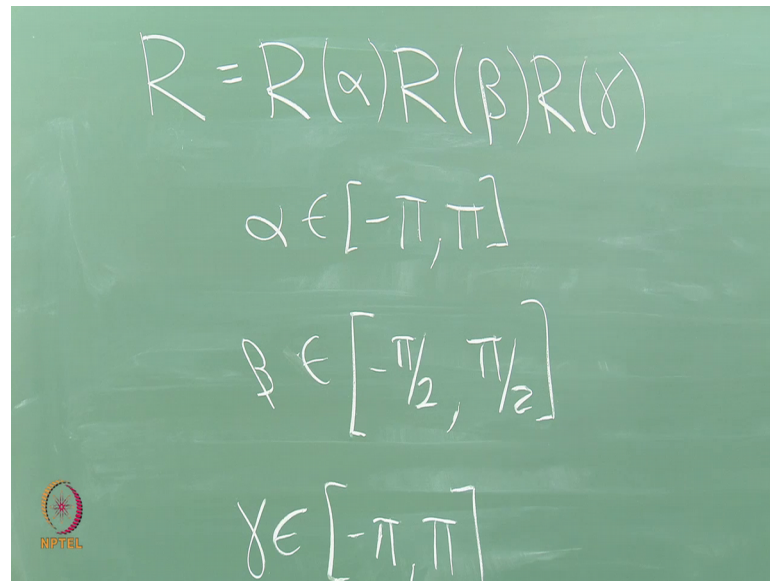 R = R(α)R(β)R(γ)
α ∈ [-π, π]
β ∈ [-π/2, π/2]
γ ∈ [-π, π]
NPTEL